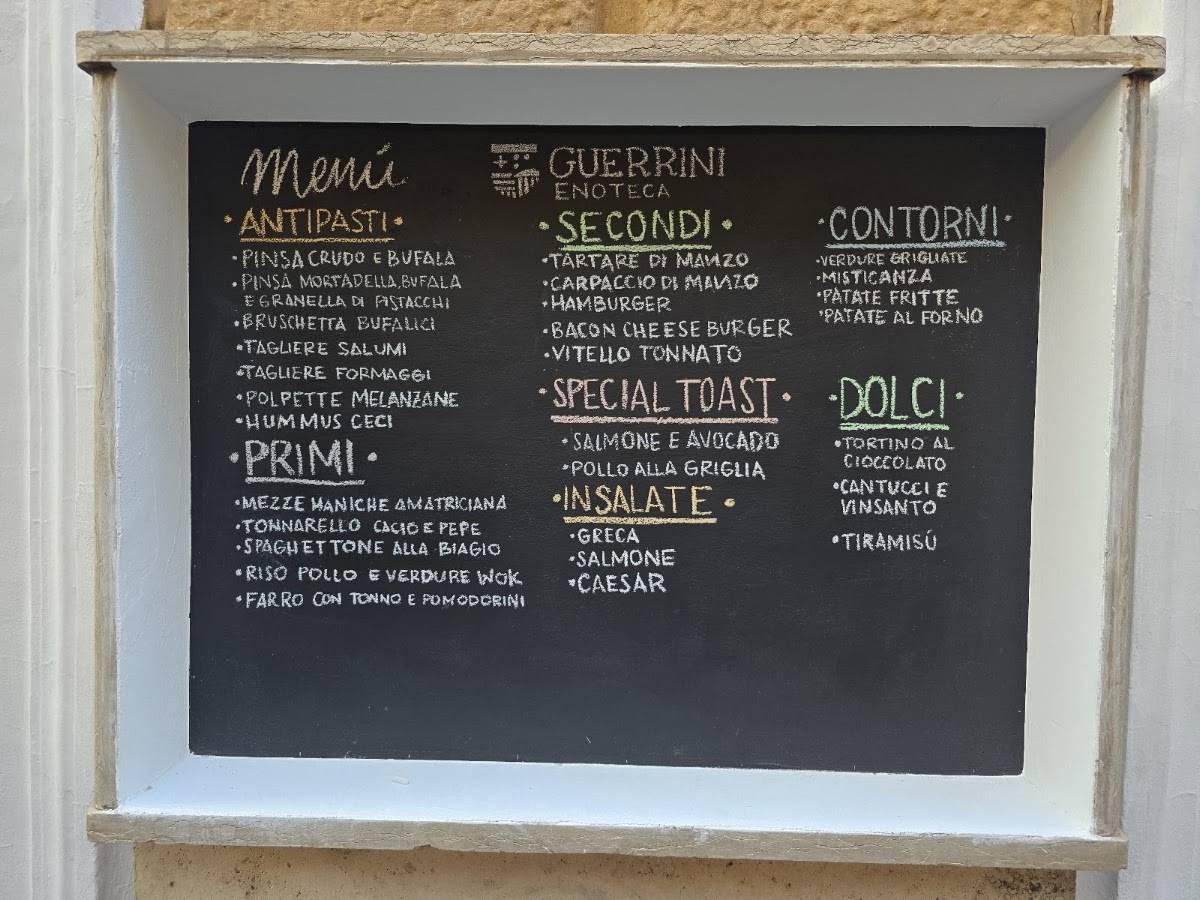 Menú
GUERRINI
ENOTECA
• ANTIPASTI •
• PINSA CRUDO E BUFALA
• PINSA MORTADELLA, BUFALA
E GRANELLA DI PISTACCHI
• BRUSCHETTA BUFALICI
• TAGLIERE SALUMI
• TAGLIERE FORMAGGI
• POLPETTE MELANZANE
• HUMMUS CECI
• PRIMI •
• MEZZE MANICHE AMATRICIANA
• TONNARELLO CACIO E PEPE
• SPAGHETTONE ALLA BIAGIO
• RISO POLLO E VERDURE WOK
• FARRO CON TONNO E POMODORINI
• SECONDI •
• TARTARE DI MANZO
• CARPACCIO DI MANZO
• HAMBURGER
• BACON CHEESE BURGER
• VITELLO TONNATO
• SPECIAL TOAST •
• SALMONE E AVOCADO
• POLLO ALLA GRIGLIA
• INSALATE •
• GRECA
• SALMONE
• CAESAR
• CONTORNI •
• VERDURE GRIGLIATE
• MISTICANZA
• PATATE FRITTE
• PATATE AL FORNO
• DOLCI •
• TORTINO AL
CIOCCOLATO
• CANTUCCI E
VINSANTO
• TIRAMISÚ